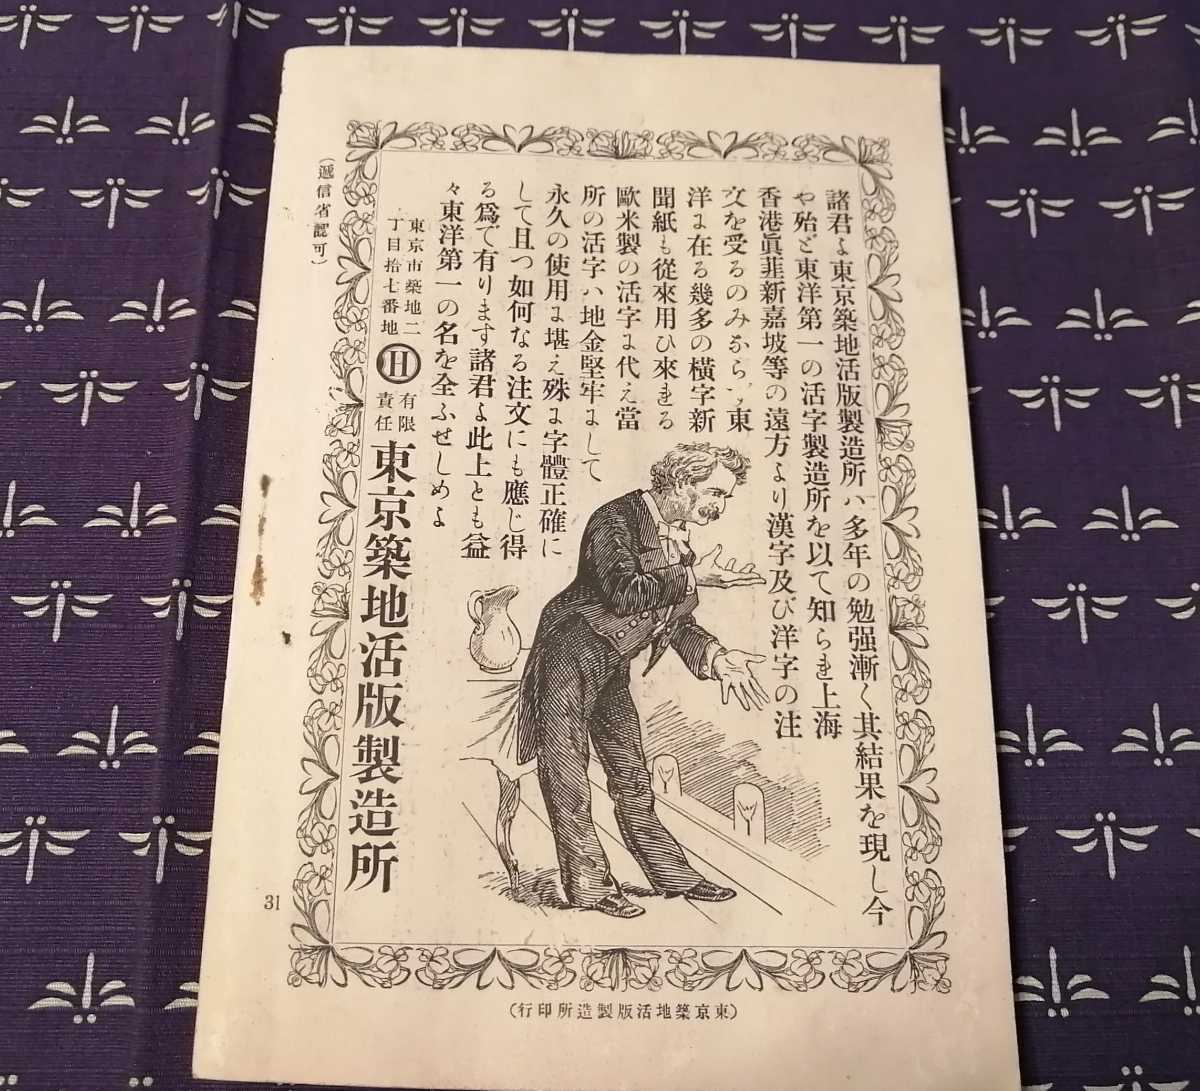 諸君よ東京築地活版製造所ハ多年の勉强漸く其結果を現し今
や殆ど東洋第一の活字製造所を以て知られ上海
香港眞韮新嘉坡等の遠方より漢字及び洋字の注
文を受るのみならず東
洋に在る幾多の橫字新
聞紙も從來用ひ來れる
歐米製の活字に代え當
所の活字ハ地金堅牢にして
永久の使用に堪え殊に字體正確に
して且つ如何なる注文にも應じ得
る爲で有ります諸君よ此上とも益
々東洋第一の名を全ふせしめよ
東京市築地二
丁目拾七番地
H
有限
責任
東京築地活版製造所
(遞信省認可)
31
(東京築地活版製造所印行)